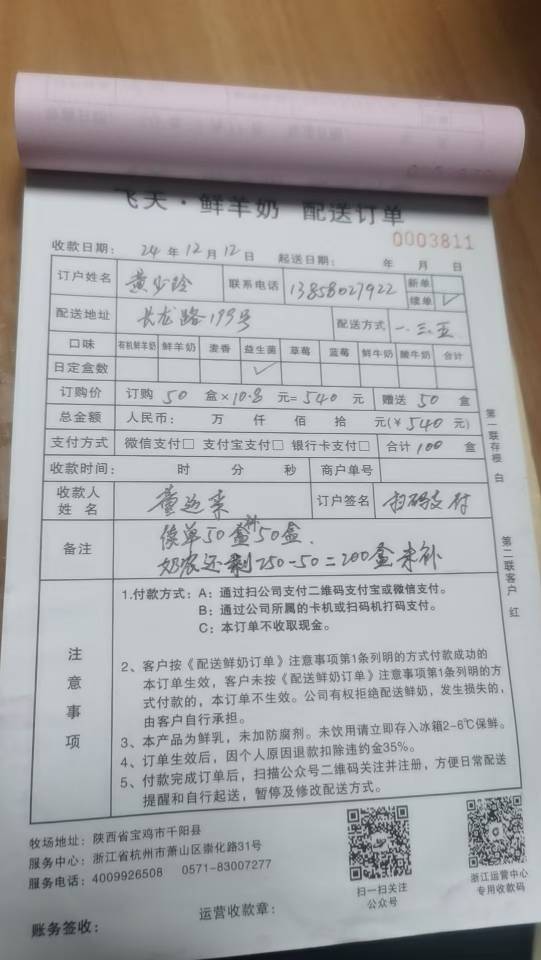 飞天·鲜羊奶 配送订单
0003811
收款日期： 24 年 12 月 12 日 起送日期： 年 月 日
订户姓名 黄少玲 联系电话 13858027922 新单
续单 ✓
配送地址 长龙路199号 配送方式 一.三.五
口味 有机鲜羊奶 鲜羊奶 麦香 益生菌 草莓 蓝莓 鲜牛奶 酸牛奶 合计
日定盒数 ✓
订购价 订购 50 盒×10.8 元= 540 元 赠送 50 盒
总金额 人民币： 万 仟 佰 拾 元(¥ 540 元)
支付方式 微信支付□ 支付宝支付□ 银行卡支付□ 合计 100 盒
收款时间： 时 分 秒 商户单号
收款人姓名 订户签名 扫码支付
备注 续单50盒补50盒.
奶农还剩250-50=200盒未补
注意事项
1.付款方式：A：通过扫公司支付二维码支付宝或微信支付。
B：通过公司所属的卡机或扫码机打码支付。
C：本订单不收取现金。
2、客户按《配送鲜奶订单》注意事项第1条列明的方式付款成功的
本订单生效，客户未按《配送鲜奶订单》注意事项第1条列明的方
式付款的，本订单不生效。公司有权拒绝配送鲜奶，发生损失的，
由客户自行承担。
3、本产品为鲜乳，未加防腐剂。未饮用请立即存入冰箱2-6℃保鲜。
4、订单生效后，因个人原因退款扣除违约金35%。
5、付款完成订单后，扫描公众号二维码关注并注册，方便日常配送
提醒和自行起送，暂停及修改配送方式。
第一联存根 白
第二联客户 红
牧场地址：陕西省宝鸡市千阳县
服务中心：浙江省杭州市萧山区崇化路31号
服务电话：4009926508 0571-83007277
扫一扫关注
公众号
浙江运营中心
专用收款码
账务签收： 运营收款章：